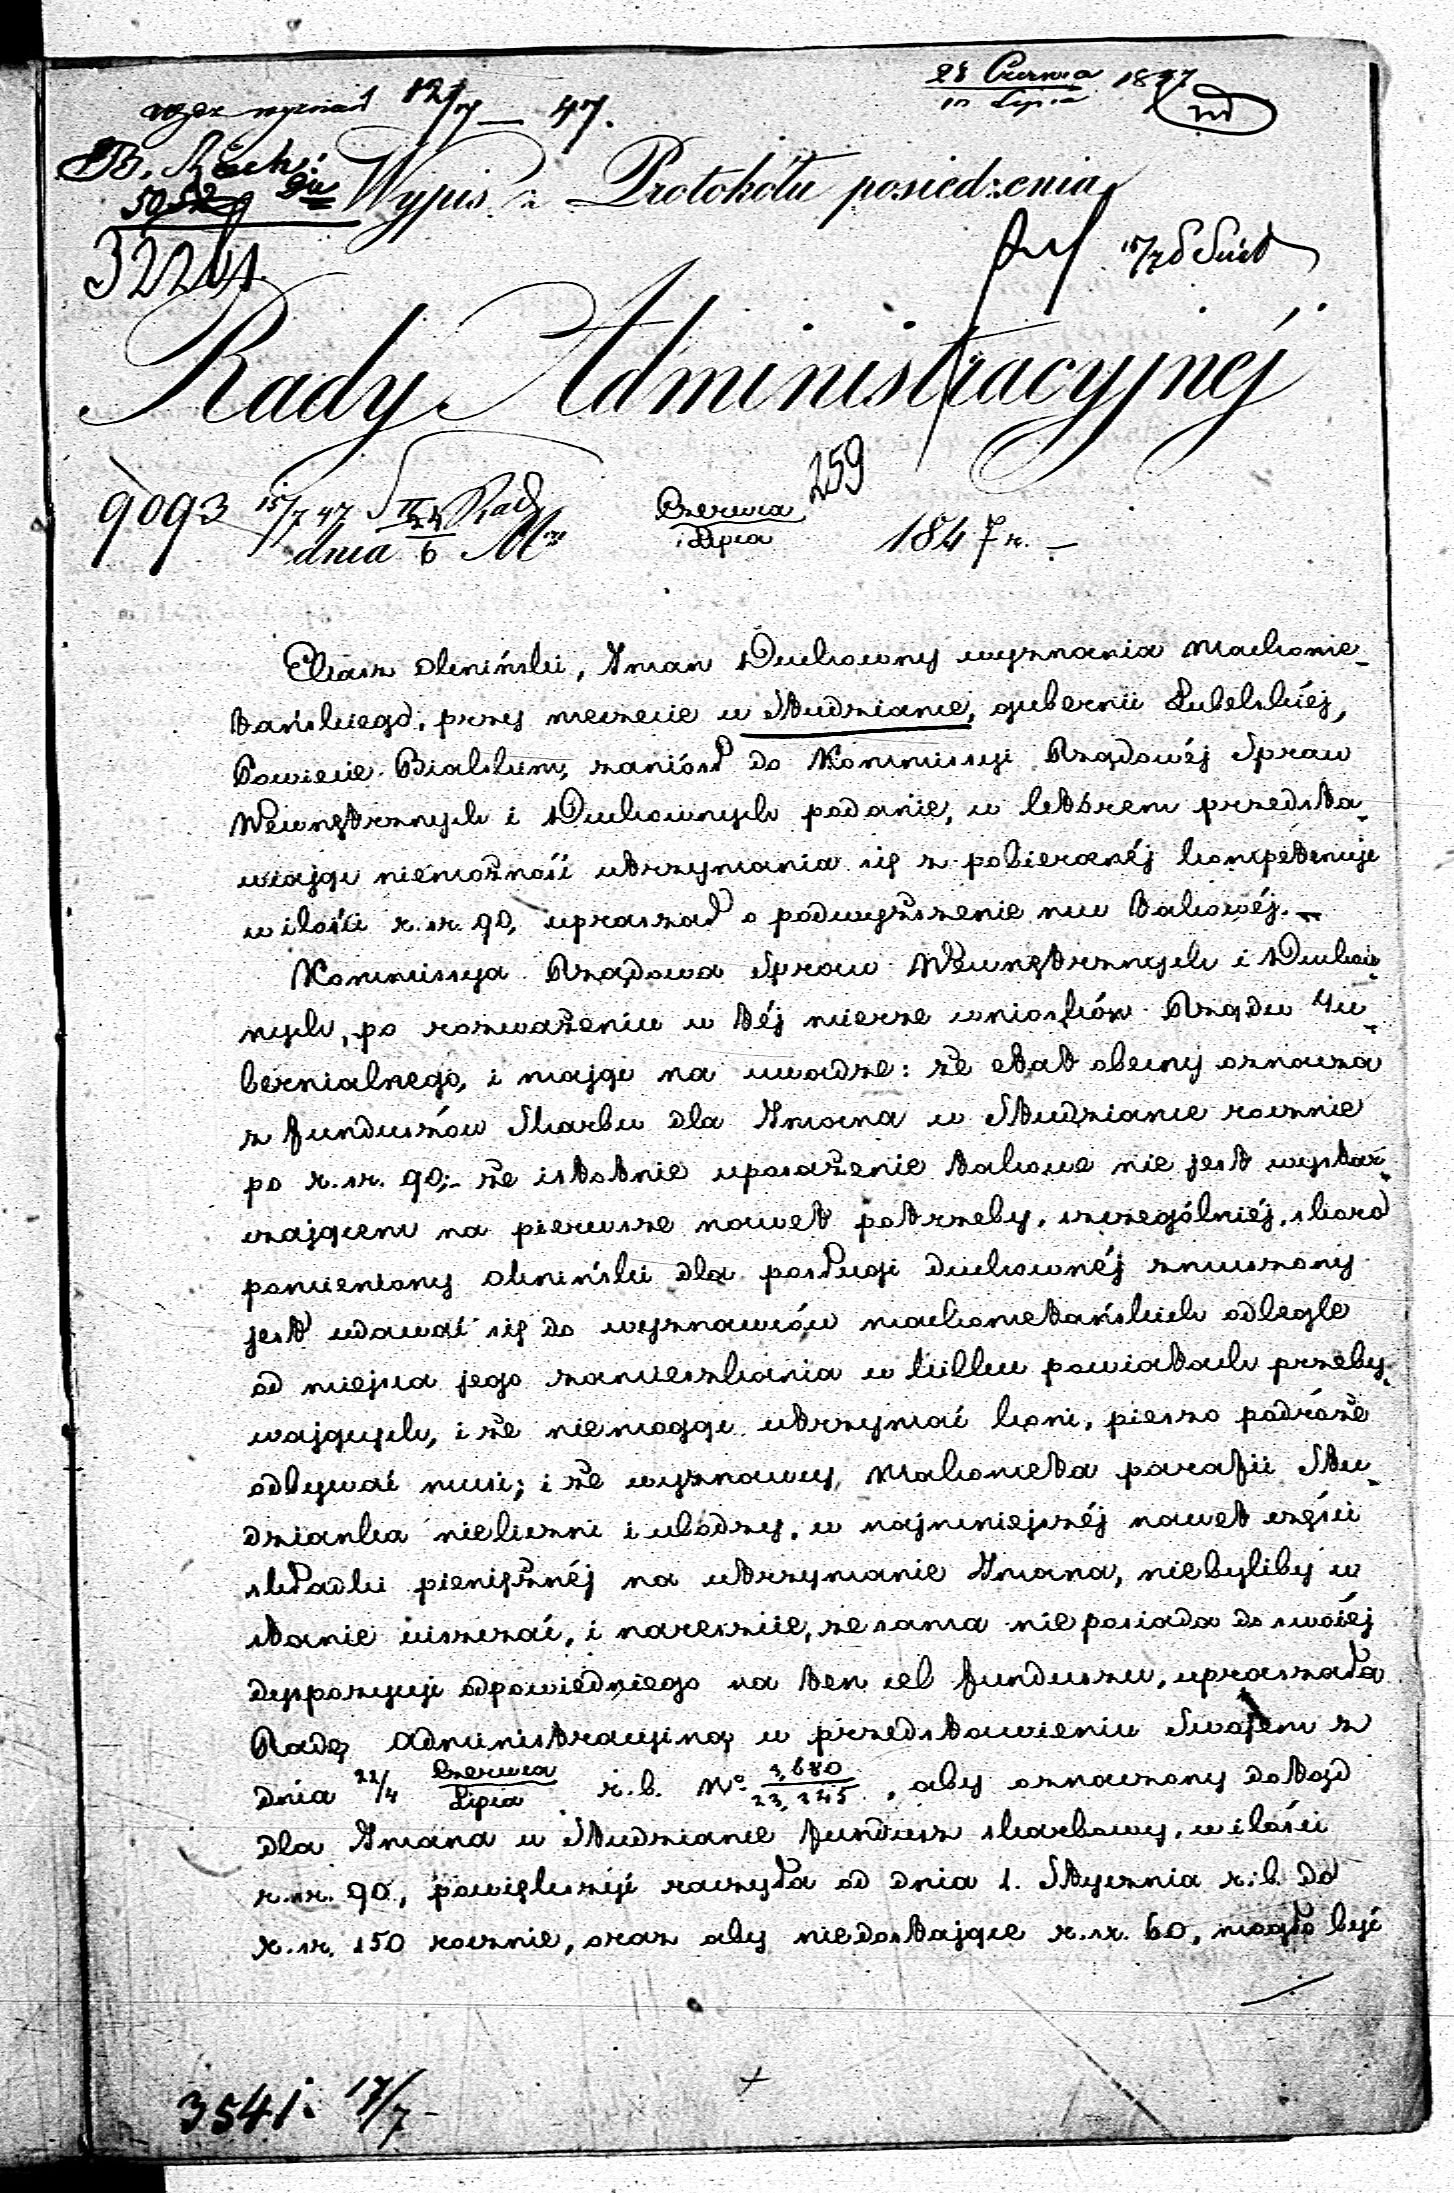 28 Czerwca 1847
10 Lipca
12/7 — 47.
Wypis z Protokółu posiedzenia
32241
Rady Administracyjnéj
259
9093 15/7 47
dnia 24/6 Czerwca/Lipca 1847 r. —
Eliasz Okmiński, Iman Duchowny wyznania Machome-
tańskiego, przy meczecie w Studziance, gubernii Lubelskiéj,
Powiecie Bialskim, zaniósł do Kommissyi Rządowéj Spraw
Wewnętrznych i Duchownych podanie, w którem przedsta-
wiając niemożność utrzymania się z pobieranéj kompetencyi
w ilości r. sr. 90, upraszał o podwyższenie mu takowéj. —
Kommissya Rządowa Spraw Wewnętrznych i Duchow-
nych, po rozważeniu w téj mierze wniosków Rządu Gu-
bernialnego, i mając na uwadze: że etat obecny oznacza
z funduszów Skarbu dla Imana w Studziance rocznie
po r. sr. 90; — że istotnie uposażenie takowe nie jest wystar-
czającem na pierwsze nawet potrzeby, szczególniéj, skoro
pomieniony Okmiński dla posługi duchownéj zmuszony
jest udawać się do wyznawców machometańskich odlegle
od miejsca jego zamieszkania w kilku powiatach przeby-
wających, i że niemogąc utrzymać koni, pieszo podróże
odbywać musi; i że wyznawcy Machometa parafii Stu-
dzianka nieliczni i ubodzy, w najmniejszéj nawet części
składki pieniężnéj na utrzymanie Imana, niebyliby w
stanie uiszczać, i nareszcie, że sama nie posiada do swojéj
dyspozycyi odpowiedniego na ten cel funduszu, upraszała
Radę Administracyjną w przedstawieniu Swojem z
dnia 22/4 Czerwca/Lipca r. b. No 3,680/23,345, aby oznaczony dotąd
dla Imana w Studziance fundusz skarbowy, w ilości
r. sr. 90, powiększyć raczyła od dnia 1. Stycznia r. b. do
r. sr. 150 rocznie, oraz aby niedostające r. sr. 60, mogło być
3541. 17/7